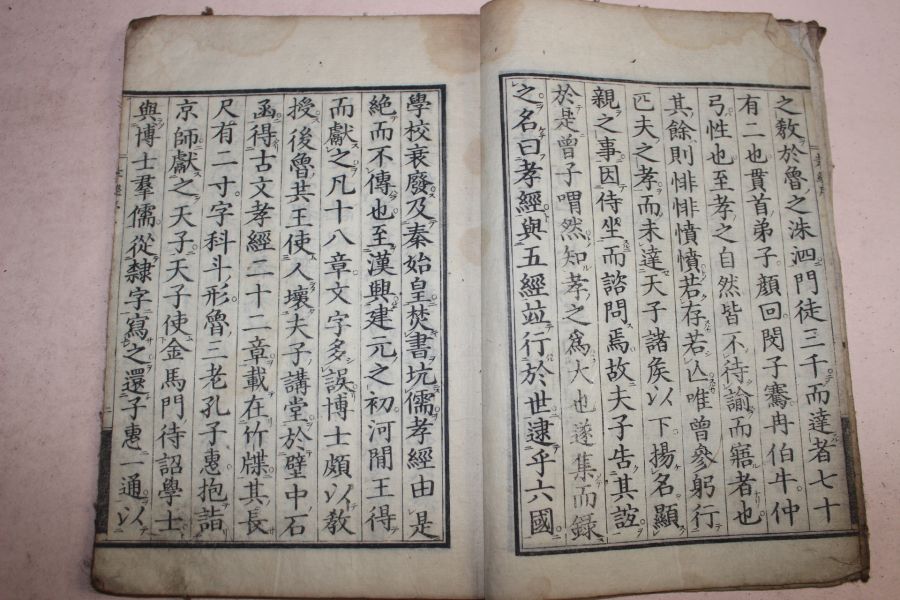 之敎於魯之洙泗門徒三千而達者七十
有二也貫首弟子顏回閔子騫冉伯牛仲
弓性也至孝之自然皆不待諭而寤者也
其餘則悱悱憤憤若存若亾唯曾參躬行
匹夫之孝而未達天子諸矦以下揚名顯
親之事因侍坐而諮問焉故夫子告其誼
於是曾子喟然知孝之爲大也遂集而錄
之名曰孝經與五經並行於世逮乎六國
學校衰廢及秦始皇焚書坑儒孝經由是
絶而不傳也至漢興建元之初河閒王得
而獻之凡十八章文字多誤博士頗以敎
授後魯共王使人壞夫子講堂於壁中石
函得古文孝經二十二章載在竹牒其長
尺有二寸字科斗形魯三老孔子惠抱詣
京師獻之天子天子使金馬門待詔學士
與博士羣儒從隸字寫之還子惠一通以